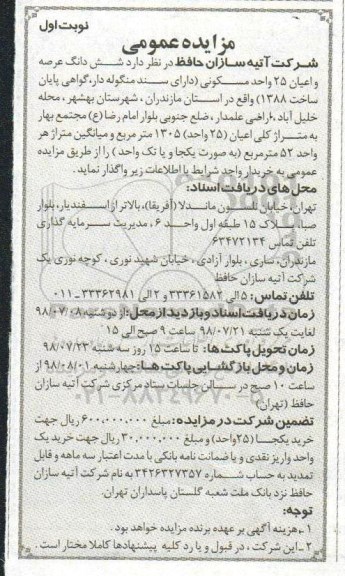 نوبت اول
مزایده عمومی
شرکت آتیه سازان حافظ در نظر دارد شش دانگ عرصه
و اعیان ۲۵ واحد مسکونی (دارای سند منگوله دار،گواهی پایان
ساخت ۱۳۸۸) واقع در استان مازندران ، شهرستان بهشهر ، محله
خلیل آباد ،اراضی علمدار ، ضلع جنوبی بلوار امام رضا (ع) مجتمع بهار
به متراژ کلی اعیان (۲۵ واحد) ۱۳۰۵ متر مربع و میانگین متراژ هر
واحد ۵۲ مترمربع (به صورت یکجا و یا تک واحد ) را از طریق مزایده
عمومی به خریدار واجد شرایط با اطلاعات زیر واگذار نماید.
محل های دریافت اسناد:
تهران، خیابان نلسون ماندلا (آفریقا)، بالاتر از اسفندیار، بلوار
صبا، پلاک ۱۵ طبقه اول واحد ۶ ، مدیریت سرمایه گذاری
تلفن تماس ۶۳۴۷۲۱۳۴
مازندران، ساری ، بلوار آزادی ، خیابان شهید نوری ، کوچه نوری یک
شرکت آتیه سازان حافظ
تلفن تماس: ۵ الی ۳۳۳۶۱۵۸۲ و ۲ الی ۳۳۳۶۲۹۸۱-۰۱۱
زمان دریافت اسناد و بازدید از محل: از دوشنبه ۹۸/۰۷/۰۸
لغایت یک شنبه ۹۸/۰۷/۲۱ ساعت ۹ صبح الی ۱۵
زمان تحویل پاکت ها: تا ساعت ۱۵ روز سه شنبه ۹۸/۰۷/۲۳
زمان و محل بازگشایی پاکت ها: چهارشنبه ۹۸/۰۸/۰۱ از
ساعت ۱۰ صبح در سالن جلسات ستاد مرکزی شرکت آتیه سازان
حافظ (تهران)
تضمین شرکت در مزایده: مبلغ ۶۰۰,۰۰۰,۰۰۰ ریال جهت
خرید یکجا (۲۵واحد) و مبلغ ۳۰,۰۰۰,۰۰۰ ریال جهت خرید یک
واحد واریز نقدی و یا ضمانت نامه بانکی با مدت اعتبار سه ماهه و قابل
تمدید به حساب شماره ۳۴۲۶۳۲۷۳۵۷ به نام شرکت آتیه سازان
حافظ نزد بانک ملت شعبه گلستان پاسداران تهران.
توجه:
۱-هزینه آگهی بر عهده برنده مزایده خواهد بود.
۲-این شرکت ، در قبول و یا رد کلیه پیشنهادها کاملا مختار است .